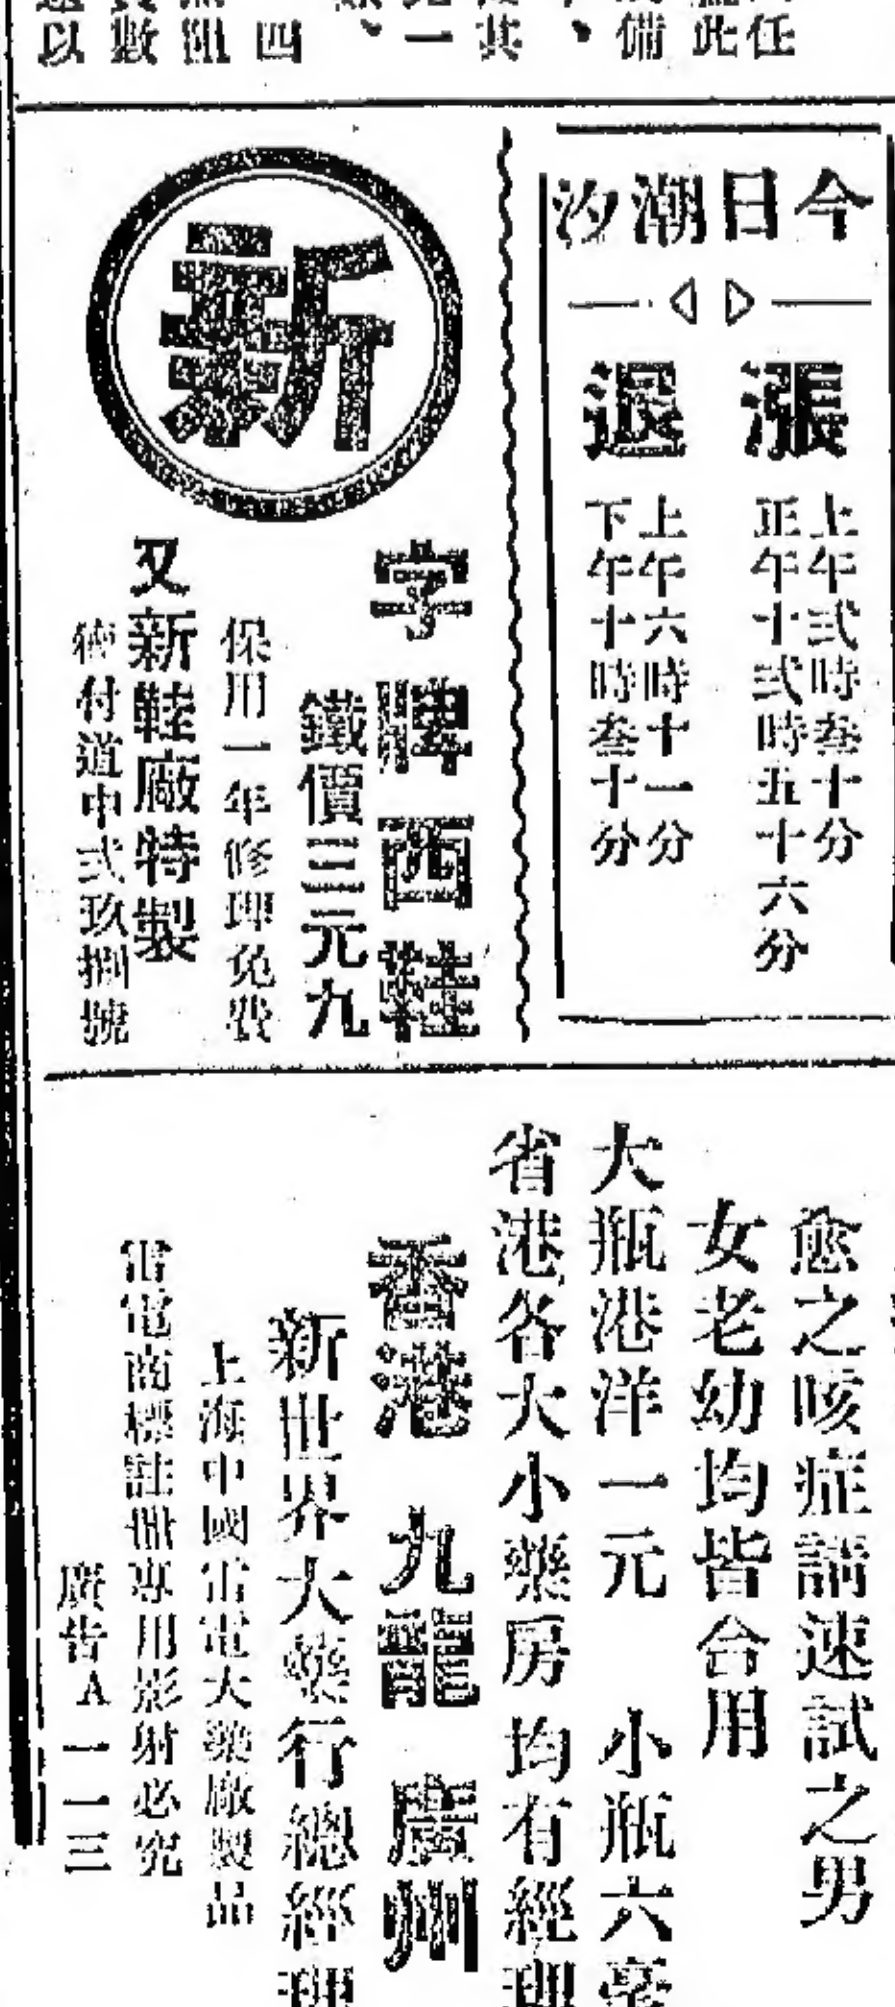 今日潮汐
漲
上午式時叁十分
正午十式時五十六分
退
上午六時十一分
下午十時叁十分
新
字牌西鞋
鐵價三元九
保用一年修理免費
又新鞋廠特製
德付道中式玖捌號
愈之咳症請速試之男
女老幼均皆合用
大瓶港洋一元 小瓶六毫
省港各大小藥房均有經理
香港 九龍 廣州
新世界大藥行總經理
上海中國雷電大藥廠製品
雷電商標註冊專用影射必究
廣告A一一三